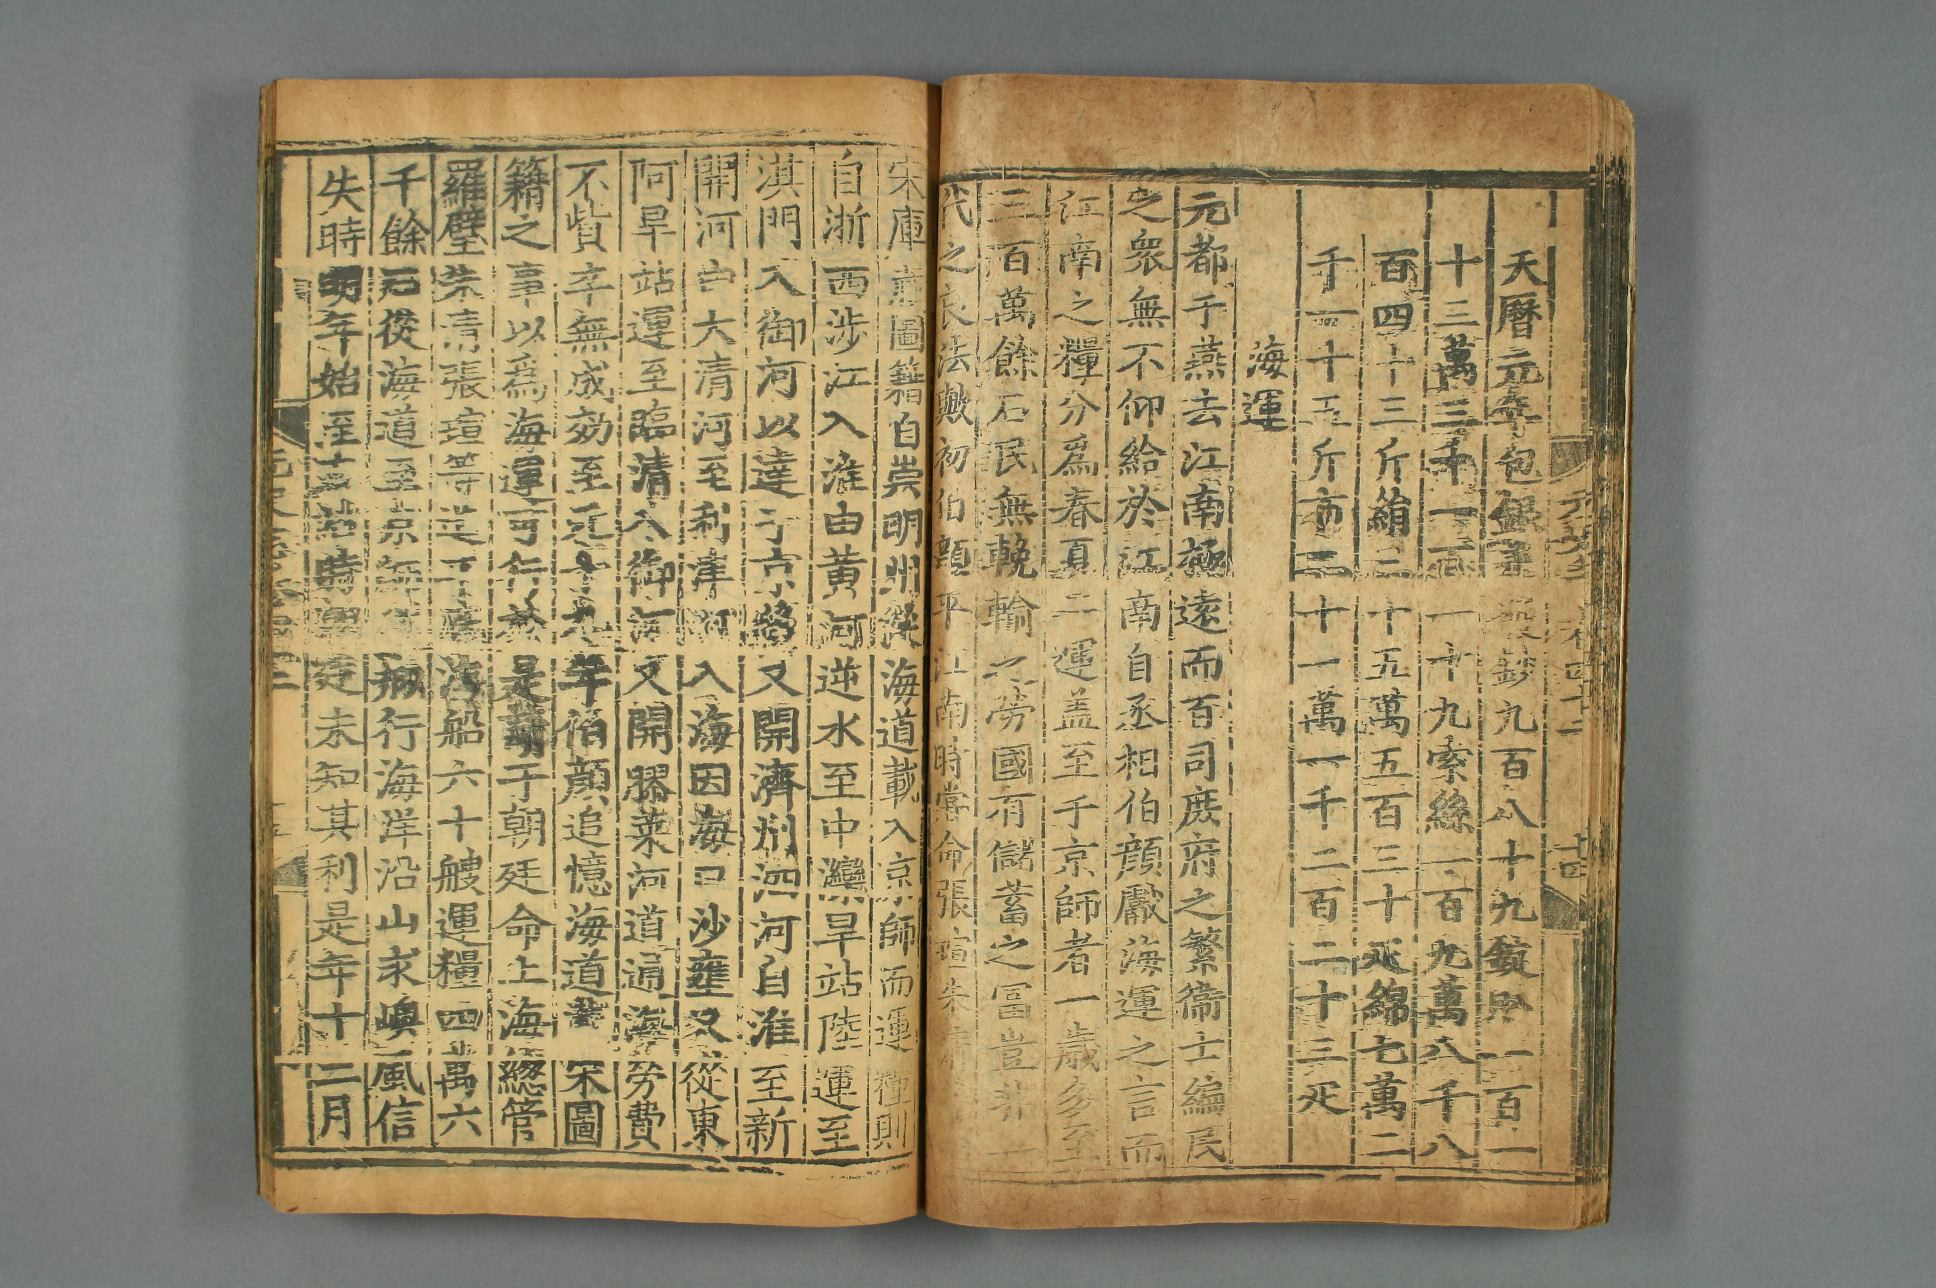 天曆元年包銀差發鈔九百八十九錠𧵳一百一
十三萬三千一百一十九索絲一百九萬八千八
百四十三斤絹三十五萬五百三十疋綿七萬二
千一十五斤布二十一萬一千二百二十三疋
海運
元都于燕去江南極遠而百司庶府之繁衞士編民
之衆無不仰給於江南自丞相伯顏獻海運之言而
江南之糧分爲春夏二運蓋至于京師者一歲多至
三百萬餘石民無輓輸之勞國有儲蓄之冨豈非一
代之良法歟初伯顏平江南時嘗命張瑄朱清
宋庫藏圖籍自崇明州從海道載入京師而運糧則
自浙西涉江入淮由黃河逆水至中灤旱站陸運至
淇門入御河以達于京後又開濟州泗河自淮至新
開河由大清河至利津河入海因海口沙壅又從東
阿旱站運至臨清入御河又開膠萊河道通海勞費
不貲卒無成効至元十九年伯顏追憶海道載宋圖
籍之事以爲海運可行於是請于朝廷命上海緫管
羅璧朱清張瑄等造平底海船六十艘運糧四萬六
千餘石從海道至京師然剏行海洋沿山求㠘風信
失時明年始至直沽時朝廷未知其利是年十二月
元史志卷四十二
十四